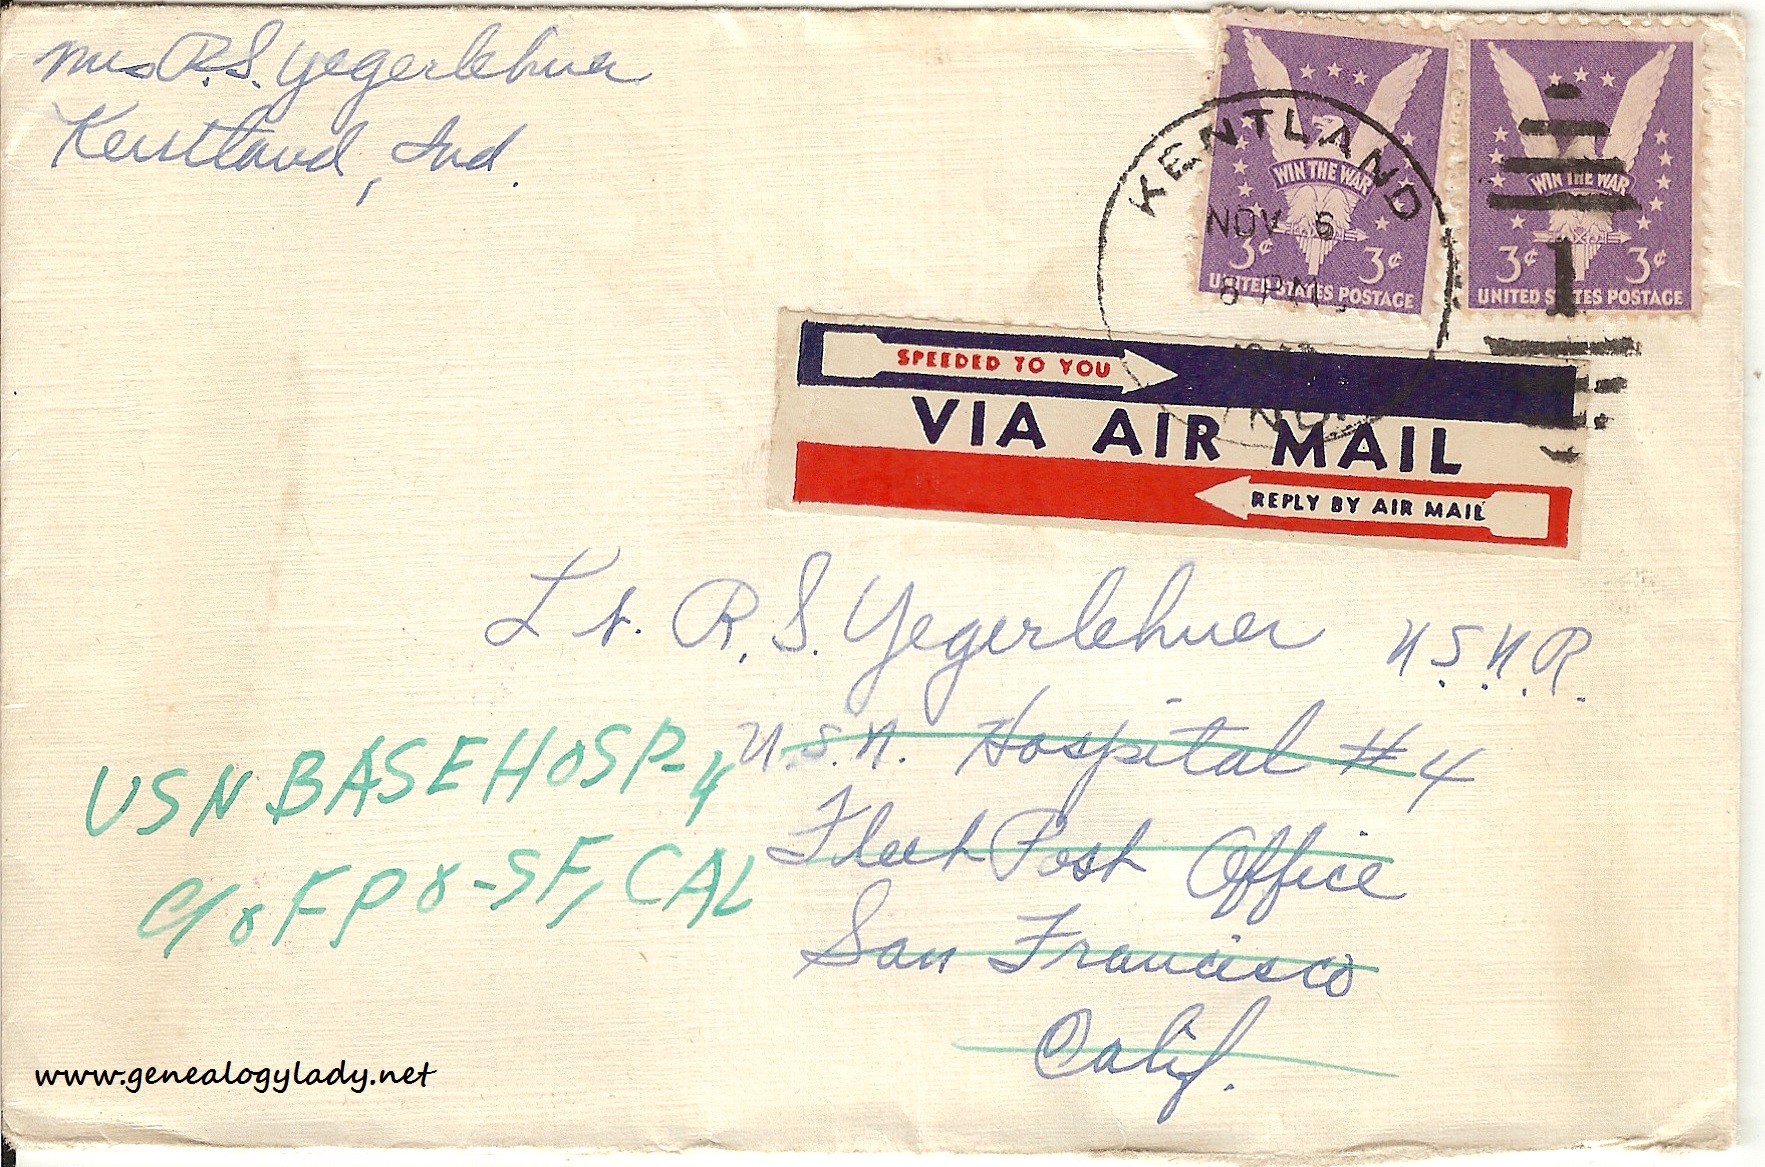 Mrs R.S. Yegerlehner
Kentland, Ind.
WIN THE WAR
3¢ 3¢
UNITED STATES POSTAGE
WIN THE WAR
3¢ 3¢
UNITED STATES POSTAGE
KENTLAND
NOV 6
8 PM
1943
IND.
1
SPEEDED TO YOU
VIA AIR MAIL
REPLY BY AIR MAIL
Lt. R. S. Yegerlehner U.S.N.R.
U.S.N. Hospital #4
Fleet Post Office
San Francisco
Calif.
USN BASE HOSP-4
C/o FPO-SF, CAL
www.genealogylady.net